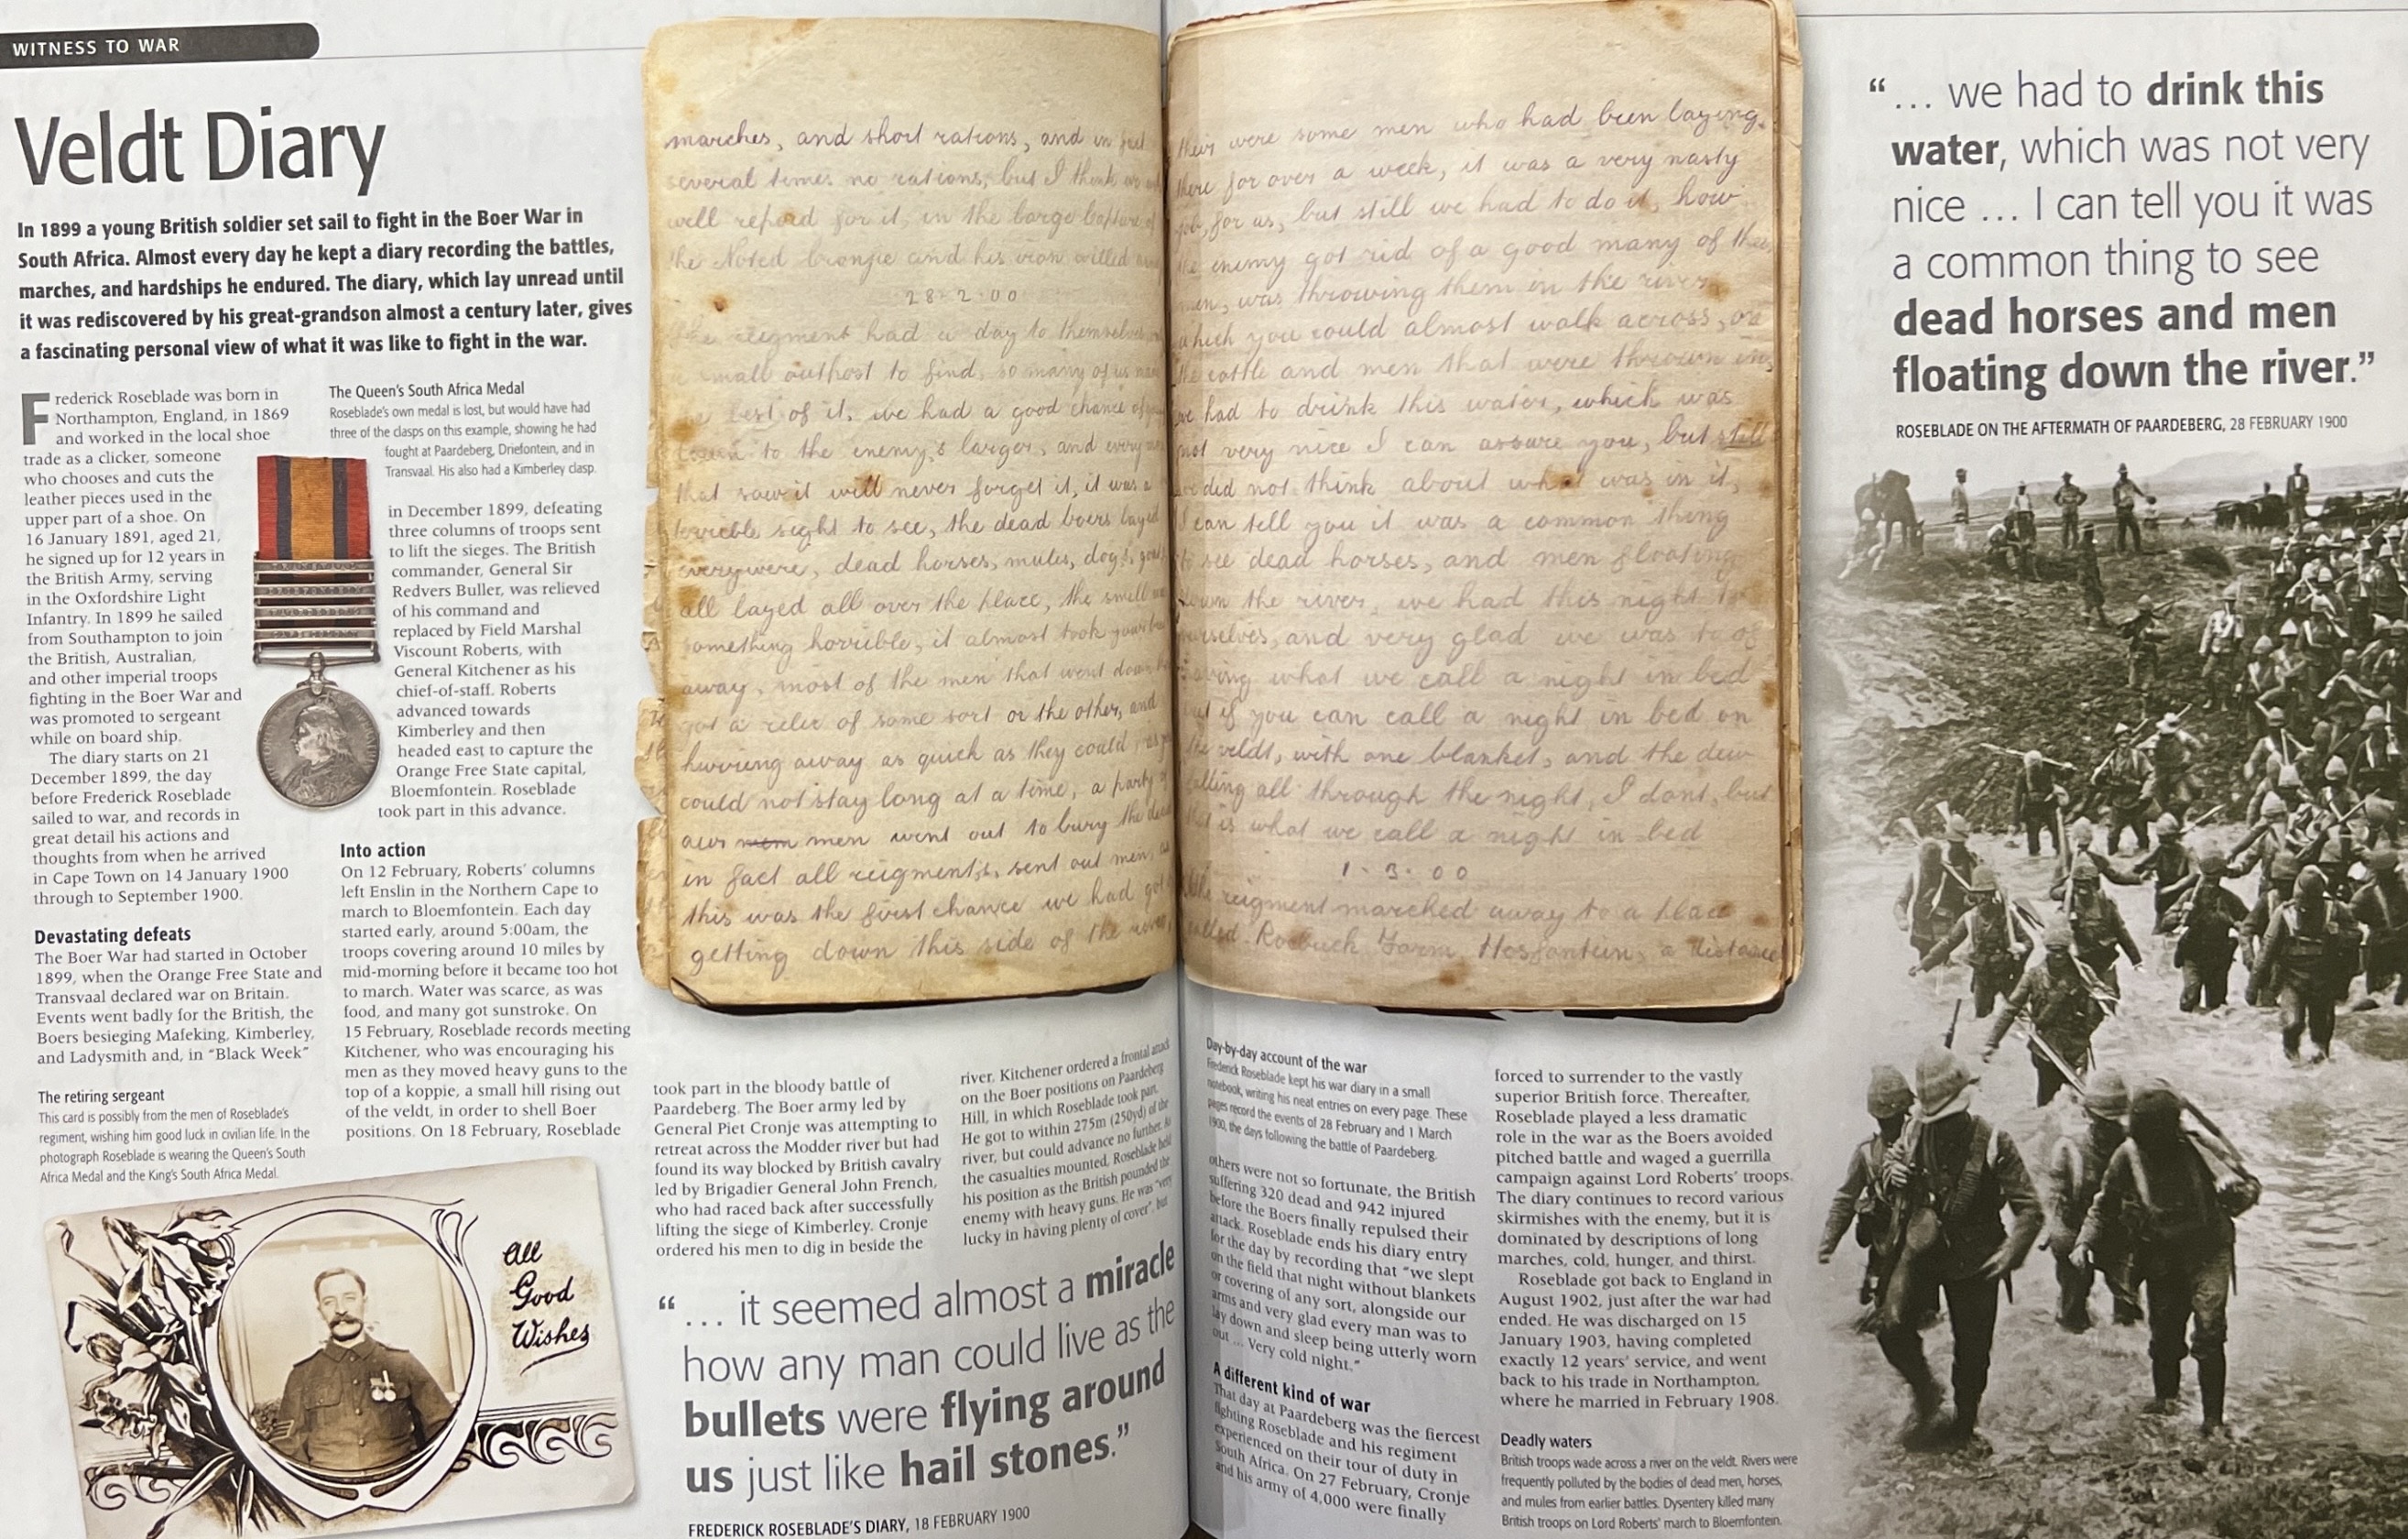 WITNESS TO WAR
Veldt Diary
In 1899 a young British soldier set sail to fight in the Boer War in
South Africa. Almost every day he kept a diary recording the battles,
marches, and hardships he endured. The diary, which lay unread until
it was rediscovered by his great-grandson almost a century later, gives
a fascinating personal view of what it was like to fight in the war.
Frederick Roseblade was born in
Northampton, England, in 1869
and worked in the local shoe
trade as a clicker, someone
who chooses and cuts the
leather pieces used in the
upper part of a shoe. On
16 January 1891, aged 21,
he signed up for 12 years in
the British Army, serving
in the Oxfordshire Light
Infantry. In 1899 he sailed
from Southampton to join
the British, Australian,
and other imperial troops
fighting in the Boer War and
was promoted to sergeant
while on board ship.
The diary starts on 21
December 1899, the day
before Frederick Roseblade
sailed to war, and records in
great detail his actions and
thoughts from when he arrived
in Cape Town on 14 January 1900
through to September 1900.
Devastating defeats
The Boer War had started in October
1899, when the Orange Free State and
Transvaal declared war on Britain.
Events went badly for the British, the
Boers besieging Mafeking, Kimberley,
and Ladysmith and, in "Black Week"
The retiring sergeant
This card is possibly from the men of Roseblade's
regiment, wishing him good luck in civilian life. In the
photograph Roseblade is wearing the Queen's South
Africa Medal and the King's South Africa Medal.
All
Good
Wishes
The Queen's South Africa Medal
Roseblade's own medal is lost, but would have had
three of the clasps on this example, showing he had
fought at Paardeberg, Driefontein, and in
Transvaal. His also had a Kimberley clasp.
in December 1899, defeating
three columns of troops sent
to lift the sieges. The British
commander, General Sir
Redvers Buller, was relieved
of his command and
replaced by Field Marshal
Viscount Roberts, with
General Kitchener as his
chief-of-staff. Roberts
advanced towards
Kimberley and then
headed east to capture the
Orange Free State capital,
Bloemfontein. Roseblade
took part in this advance.
Into action
On 12 February, Roberts' columns
left Enslin in the Northern Cape to
march to Bloemfontein. Each day
started early, around 5:00am, the
troops covering around 10 miles by
mid-morning before it became too hot
to march. Water was scarce, as was
food, and many got sunstroke. On
15 February, Roseblade records meeting
Kitchener, who was encouraging his
men as they moved heavy guns to the
top of a koppie, a small hill rising out
of the veldt, in order to shell Boer
positions. On 18 February, Roseblade
marches, and short rations, and in
several times no rations, but I think
well repaid for it, in the large capture of
the Noted Cronjie and his
28-2-00
The reigment had a day to themselves
small outpost to find, so many of us
best of it, we had a good chance of
to the enemy,s larger, and every
that saw it will never forget it, it was a
terrible sight to see, the dead boers layed
everywere, dead horses, mules, dogs,
all layed all over the place, the smell
something horrible, it almost took your
away, most of the men that went down
got a relic of some sort or the other, and
hurring away as quick as they could,
could not stay long at a time, a party of
our mem men went out to bury the dead
in fact all reigments, sent out men,
this was the first chance we had got
getting down this side of the river,
their were some men who had been laying
there for over a week, it was a very nasty
job, for us, but still we had to do it, how
the enemy got rid of a good many of their
men, was throwing them in the river
which you could almost walk across, on
the cattle and men that were thrown in,
we had to drink this water, which was
not very nice I can assure you, but still
we did not think about what was in it,
I can tell you it was a common thing
to see dead horses, and men floating
down the river, we had this night to
ourselves, and very glad we was to of
having what we call a night in bed
but if you can call a night in bed on
the veldt, with one blanket, and the dew
falling all through the night, I dont, but
that is what we call a night in bed
1-3-00
The reigment marched away to a place
called Roebuck Farm, Hosfontein, a distance
took part in the bloody battle of
Paardeberg. The Boer army led by
General Piet Cronje was attempting to
retreat across the Modder river but had
found its way blocked by British cavalry
led by Brigadier General John French,
who had raced back after successfully
lifting the siege of Kimberley. Cronje
ordered his men to dig in beside the
river. Kitchener ordered a frontal attack
on the Boer positions on Paardeberg
Hill, in which Roseblade took part.
He got to within 275m (250yd) of the
river, but could advance no further. As
the casualties mounted, Roseblade held
his position as the British pounded the
enemy with heavy guns. He was "very
lucky in having plenty of cover", but
"... it seemed almost a miracle
how any man could live as the
bullets were flying around
us just like hail stones."
FREDERICK ROSEBLADE'S DIARY, 18 FEBRUARY 1900
Day-by-day account of the war
Frederick Roseblade kept his war diary in a small
notebook, writing his neat entries on every page. These
pages record the events of 28 February and 1 March
1900, the days following the battle of Paardeberg.
others were not so fortunate, the British
suffering 320 dead and 942 injured
before the Boers finally repulsed their
attack. Roseblade ends his diary entry
for the day by recording that "we slept
on the field that night without blankets
or covering of any sort, alongside our
arms and very glad every man was to
lay down and sleep being utterly worn
out ... Very cold night."
A different kind of war
That day at Paardeberg was the fiercest
fighting Roseblade and his regiment
experienced on their tour of duty in
South Africa. On 27 February, Cronje
and his army of 4,000 were finally
forced to surrender to the vastly
superior British force. Thereafter,
Roseblade played a less dramatic
role in the war as the Boers avoided
pitched battle and waged a guerrilla
campaign against Lord Roberts' troops.
The diary continues to record various
skirmishes with the enemy, but it is
dominated by descriptions of long
marches, cold, hunger, and thirst.
Roseblade got back to England in
August 1902, just after the war had
ended. He was discharged on 15
January 1903, having completed
exactly 12 years' service, and went
back to his trade in Northampton,
where he married in February 1908.
Deadly waters
British troops wade across a river on the veldt. Rivers were
frequently polluted by the bodies of dead men, horses,
and mules from earlier battles. Dysentery killed many
British troops on Lord Roberts' march to Bloemfontein.
"... we had to drink this
water, which was not very
nice ... I can tell you it was
a common thing to see
dead horses and men
floating down the river."
ROSEBLADE ON THE AFTERMATH OF PAARDEBERG, 28 FEBRUARY 1900